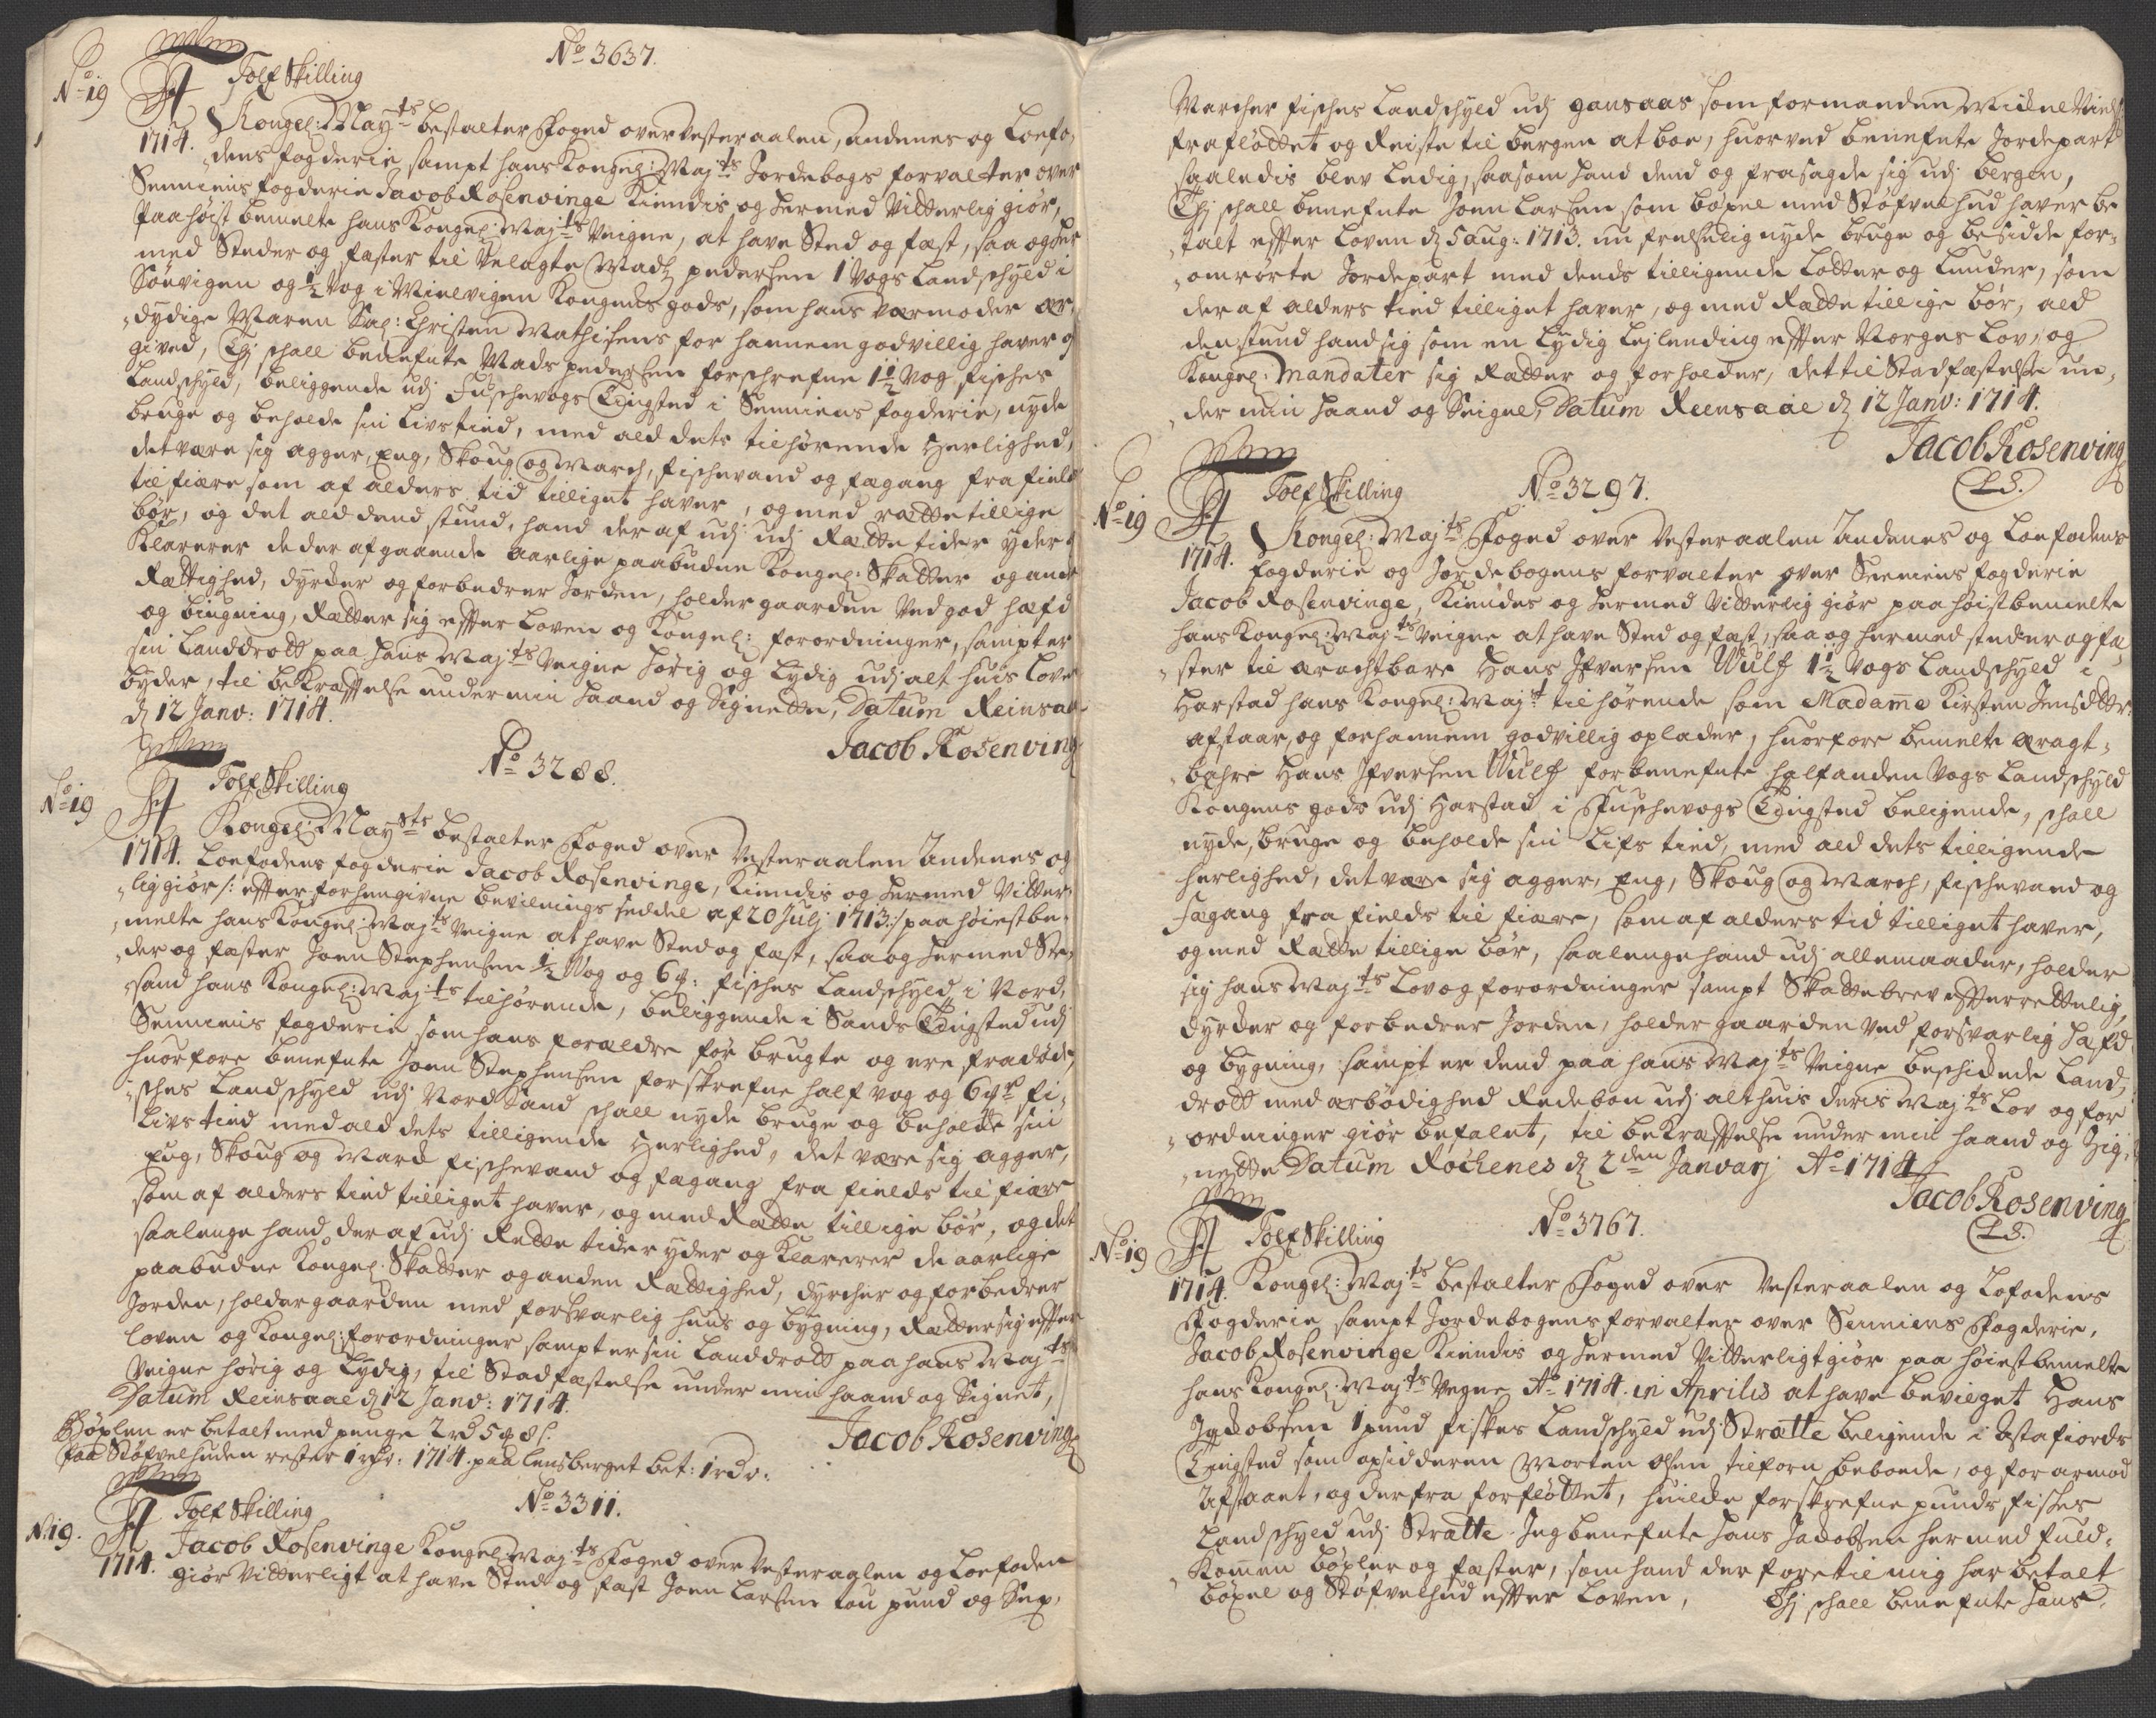 No 3637.
No 19
Tolf Skilling
1714. Kongel: Mayts bestalter Foged over Vesteraalen, Andenes og Loefo,
dens fogderie, sampt hans Kongel: Majts Jordebogs forvalter over
Senniens fogderie Jacob Rosenvinge Kiendis og hermed Vitterlig giør,
Paa høist bemelte hans Kongel: Majts Veigne, at have Sted og fæst, saa og her
med Steder og fæster til Velagte Mads pedersen 1 Vogs Landschyld i
Sørvigen og ½ Vog i Mielvigen Kongens gods, som hans Værmoder ær,
dydige Maren Sal: Christen Mathisens for hannem godvillig haver og
gived, Thj schall benefnte Mads pedersen forschrefne 1½ Vog fisches
Landschyld, beliggende udj Fuschevogs Tingsted i Senniens fogderie, nyde
bruge og beholde sin Livstied, med ald dets tilhørende Herlighed,
det være sig agger, Eng, Skoug og March, fischevand og fægang fra field
til fiære som af alders tid tilliget haver, og med rætte tillige
bør, og det ald dend stund, hand der af udj udj Rætte tider yder
Klarerer de der af gaaende aarlige paabudne Kongel: Skatter og anden
Rættighed, dyrcker og forbedrer Jorden, holder gaarden Ved god hæfd
og biugning, Rætter sig effter Loven og Kongel: forordninger, sampt er
sin Landdrott paa Hans Majts Veigne hørig og Lydig udj alt huis Loven
byder, til bekræfftelse under min Haand og Signette, Datum Reinsaa
d 12 Janv: 1714.
Jacob Rosenving
No 3288.
No 19
Tolf Skilling
1714. Kongel: Maysts bestalter Foged over Vesteraalen Andenes og
Loefodens fogderie Jacob Rosenvinge, Kiendis og hermed Vitter,
lig giør /: effter forhengivne bevilnings seddel af 20 Julj 1713:/ paa høiestbe,
melte hans Kongel: Majts Veigne at have Sted og fæst, saa og hermed Ste,
der og fæster Joen Stephensen ½ Vog og 6 : fisches Landschyld i Nord,
sand hans Kongel: Majts tilhørende, beliggende i Sands Tingsted udj
Senniens fogderie som hans forældre før brugte og ere fradøde,
huorfore benefnte Joen Stephensen forskrefne half vog og 6 fi,
sches Landschyld udj Nord Sand schall nyde bruge og beholde sin
Livs tied med ald dets tilligende Herlighed, det være sig agger,
Eng, Skoug og Mark fischevand og fægang fra fields til fiære
som af alders tied tilliget haver, og med Rætte tillige bør, og det
saalenge hand der af udj Rætte tider yder og Klarerer de aarlige
paabudne Kongel: Skatter og anden Rættighed, dyrcher og forbedrer
Jorden, holder gaarden med forsvarlig huus og bygning, Rætter sig effter
loven og Kongel: forordninger sampt er sin Landdrott paa hans Majts
Veigne hørig og Lydig, til Stadfæstelse under min haand og Signet,
Datum Reinsaae d 12 Janv: 1714.
Jacob Rosenving
Bøxlen er betalt med penge 2 rd 5 8 s:
paa Støfvelhuden rester 1 rdr: 1714. paa Lensberget bet: 1 rdr:
No 3311.
No 19.
Tolf Skilling
1714. Jacob Rosenvinge Kongel: Majts Foged over Vesteraalen og Loefoden
giør Vitterligt at have Sted og fæst Joen Larsen tou pund og Sex
Marcher fisches Landschyld udj gansaas som formanden Michel Niels
frafløttet og Reiste til bergen at boe, huorved benefnte Jordepart
saaledis blev Ledig, saasom hand dend og frasagde sig udj bergen,
Thj schall benefnte Joen Larsen som bøxel med Støfvelhud haver be
talt effter Loven d 5 aug: 1713. nu frelselig nyde bruge og besidde for,
omrørte Jordepart med dends tilligende Lotter og Lunder, som
der af alders tied tilliget haver, og med Rætte tillige bør, ald
den stund hand sig som en Lydig Lejlending effter Norges Lov, og
Kongel: Mandater sig Rætter og forholder, det til Stadfæstelse un,
der min Haand og Seignel, Datum Reensaae d 12 Janv: 1714.
Jacob Rosenving
LS.
No 3297.
No 19
Tolf Skilling
1714. Kongel: Majts Foged over Vesteraalen Andenes og Loefodens
fogderie og Jordebogens forvalter over Senniens fogderie
Jacob Rosenvinge, Kiendes og hermed Vitterlig giør paa høist bemelte
hans Kongel: Majts Veigne at have Sted og fæst, saa og hermed steder og fæ,
ster til ærachtbare Hans Ifversen Wulf 1½ Vogs Landschyld i
Harstad hans Kongel: Majts tilhørende som Madame Kirsten Jensdtr:
afstaar, og for hannem godvillig oplader, huorfore bemelte æragt,
bahre Hans Ifversen Wulf for benefnte halfanden Vogs Landschyld
Kongens gods udj Harstad i Fuschevogs Tingsted beligende, schall
nyde, bruge og beholde sin Lifs tied, med ald dets tilligende
herlighed, det være sig agger, Eng, Skoug og March, fischevand og
fægang fra fields til fiære, som af alders tid tilliget haver,
og med Rætte tillige bør, saalenge hand udj alle maader, holder
sig hans Majts Lov og forordninger sampt Skattebrev effterrettelig,
dyrcker og forbedrer Jorden, holder gaarden ved forsvarlig Hæfd
og bygning, sampt er dend paa hans Majts Veigne beschickede Land,
drott med ærbødighed Redebon udj alt huis deris Majts Lov og for
ordninger giør befalet, til bekræfftelse under min haand og Zig,
nette Datum Röchenes d 2den Janvarj Ao 1714
Jacob Rosenving
LS.
No 3767.
No 19
Tolf Skilling
1714. Kongel: Majts bestalter Foged over Vesteraalen og Lofodens
Fogderie sampt Jordebogens forvalter over Senniens Fogderie,
Jacob Rosenvinge Kiendis og hermed Vitterligt giør paa høiest bemelte
hans Kongel: Majts Vegne Ao 1714. in Aprilis at have bevilget Hans
Jackobsen 1 pund fiskes Landschyld udj Stratte beligende i Astafiords
Tingsted som opsidderen Morten Olsen tilforn beboede, og for armod
Afstaaet, og derfra forfløttet, huilcke forskrefne punds fisches
Landschyld udj Stratte Jeg benefnte Hans Jackobsen hermed fuld,
Kommen bøxler og fæster, som hand der fore til mig har betalt
bøxel og Støfvelhud effter Loven, Thj schall benefnte Hans